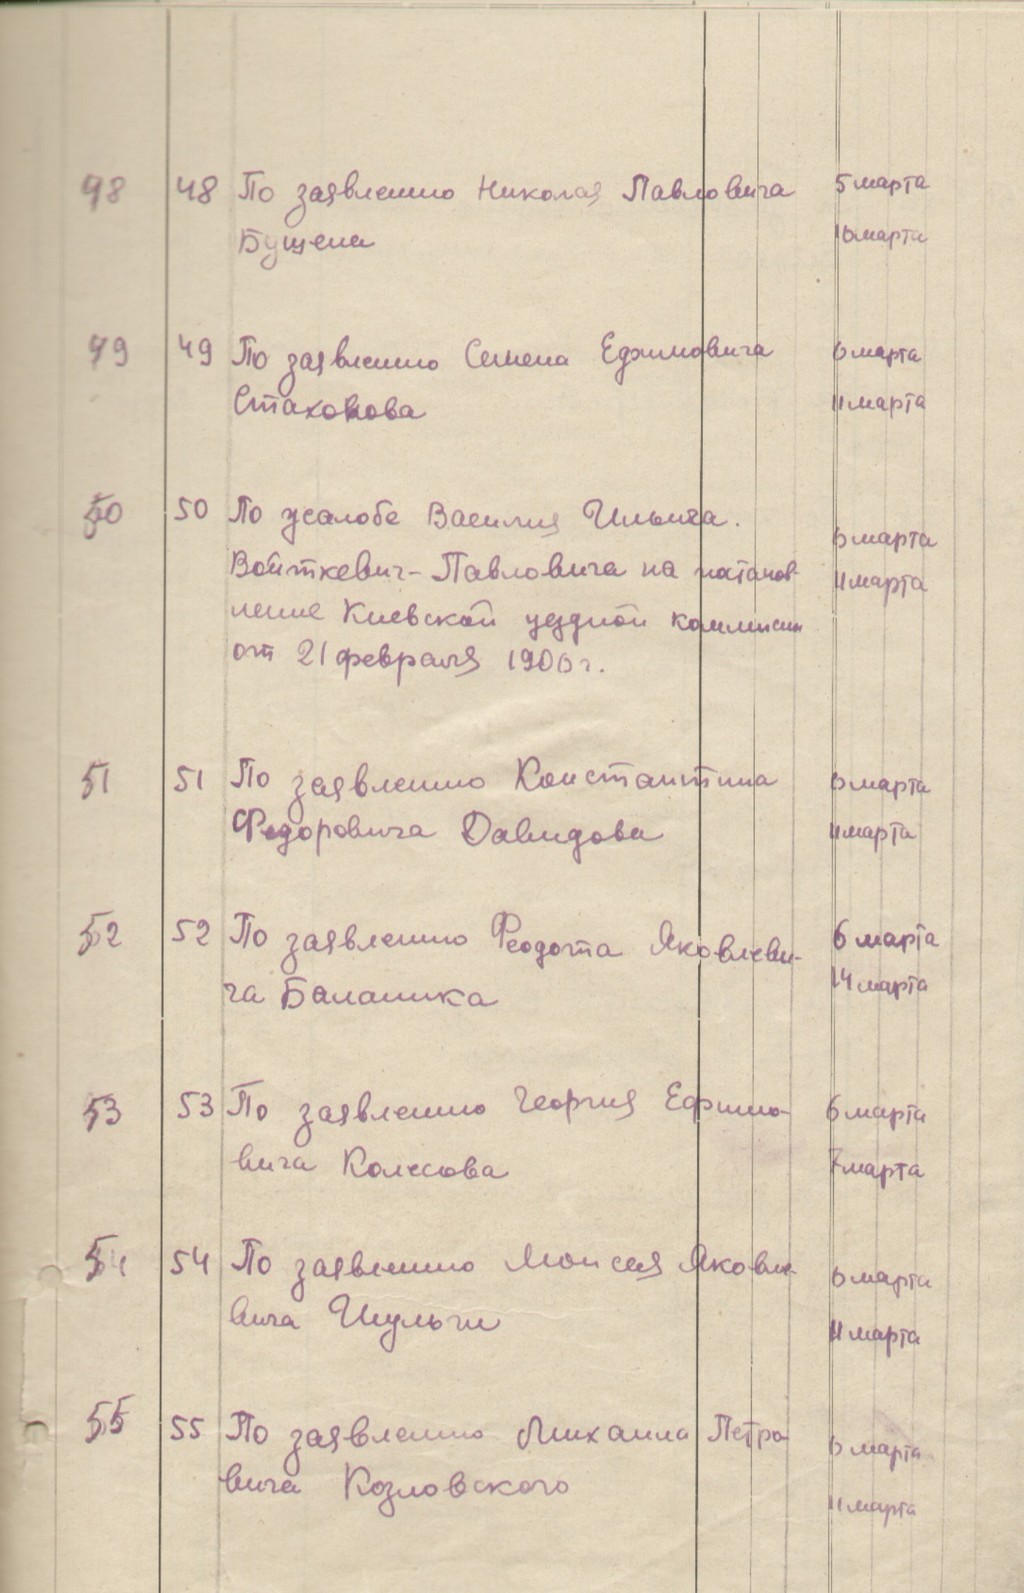 48 48 По заявлению Николая Павловича 5 марта
Бущена 16 марта
49 49 По заявлению Семена Ефимовича 6 марта
Стахов­ова 11 марта
50 50 По жалобе Василия Ильича. 6 марта
Войткевич-Павловича на постанов- 11 марта
ление Киевской уездной комиссии
от 21 февраля 1906 г.
51 51 По заявлению Константина 6 марта
Федоровича Давидова 11 марта
52 52 По заявлению Феодота Яковлеви- 6 марта
ча Баланика 14 марта
53 53 По заявлению Георгия Ефимо- 6 марта
вича Колесова 7 марта
54 54 По заявлению Моисея Яковле- 6 марта
вича Шульги 11 марта
55 55 По заявлению Михаила Петро- 6 марта
вича Козловского 11 марта